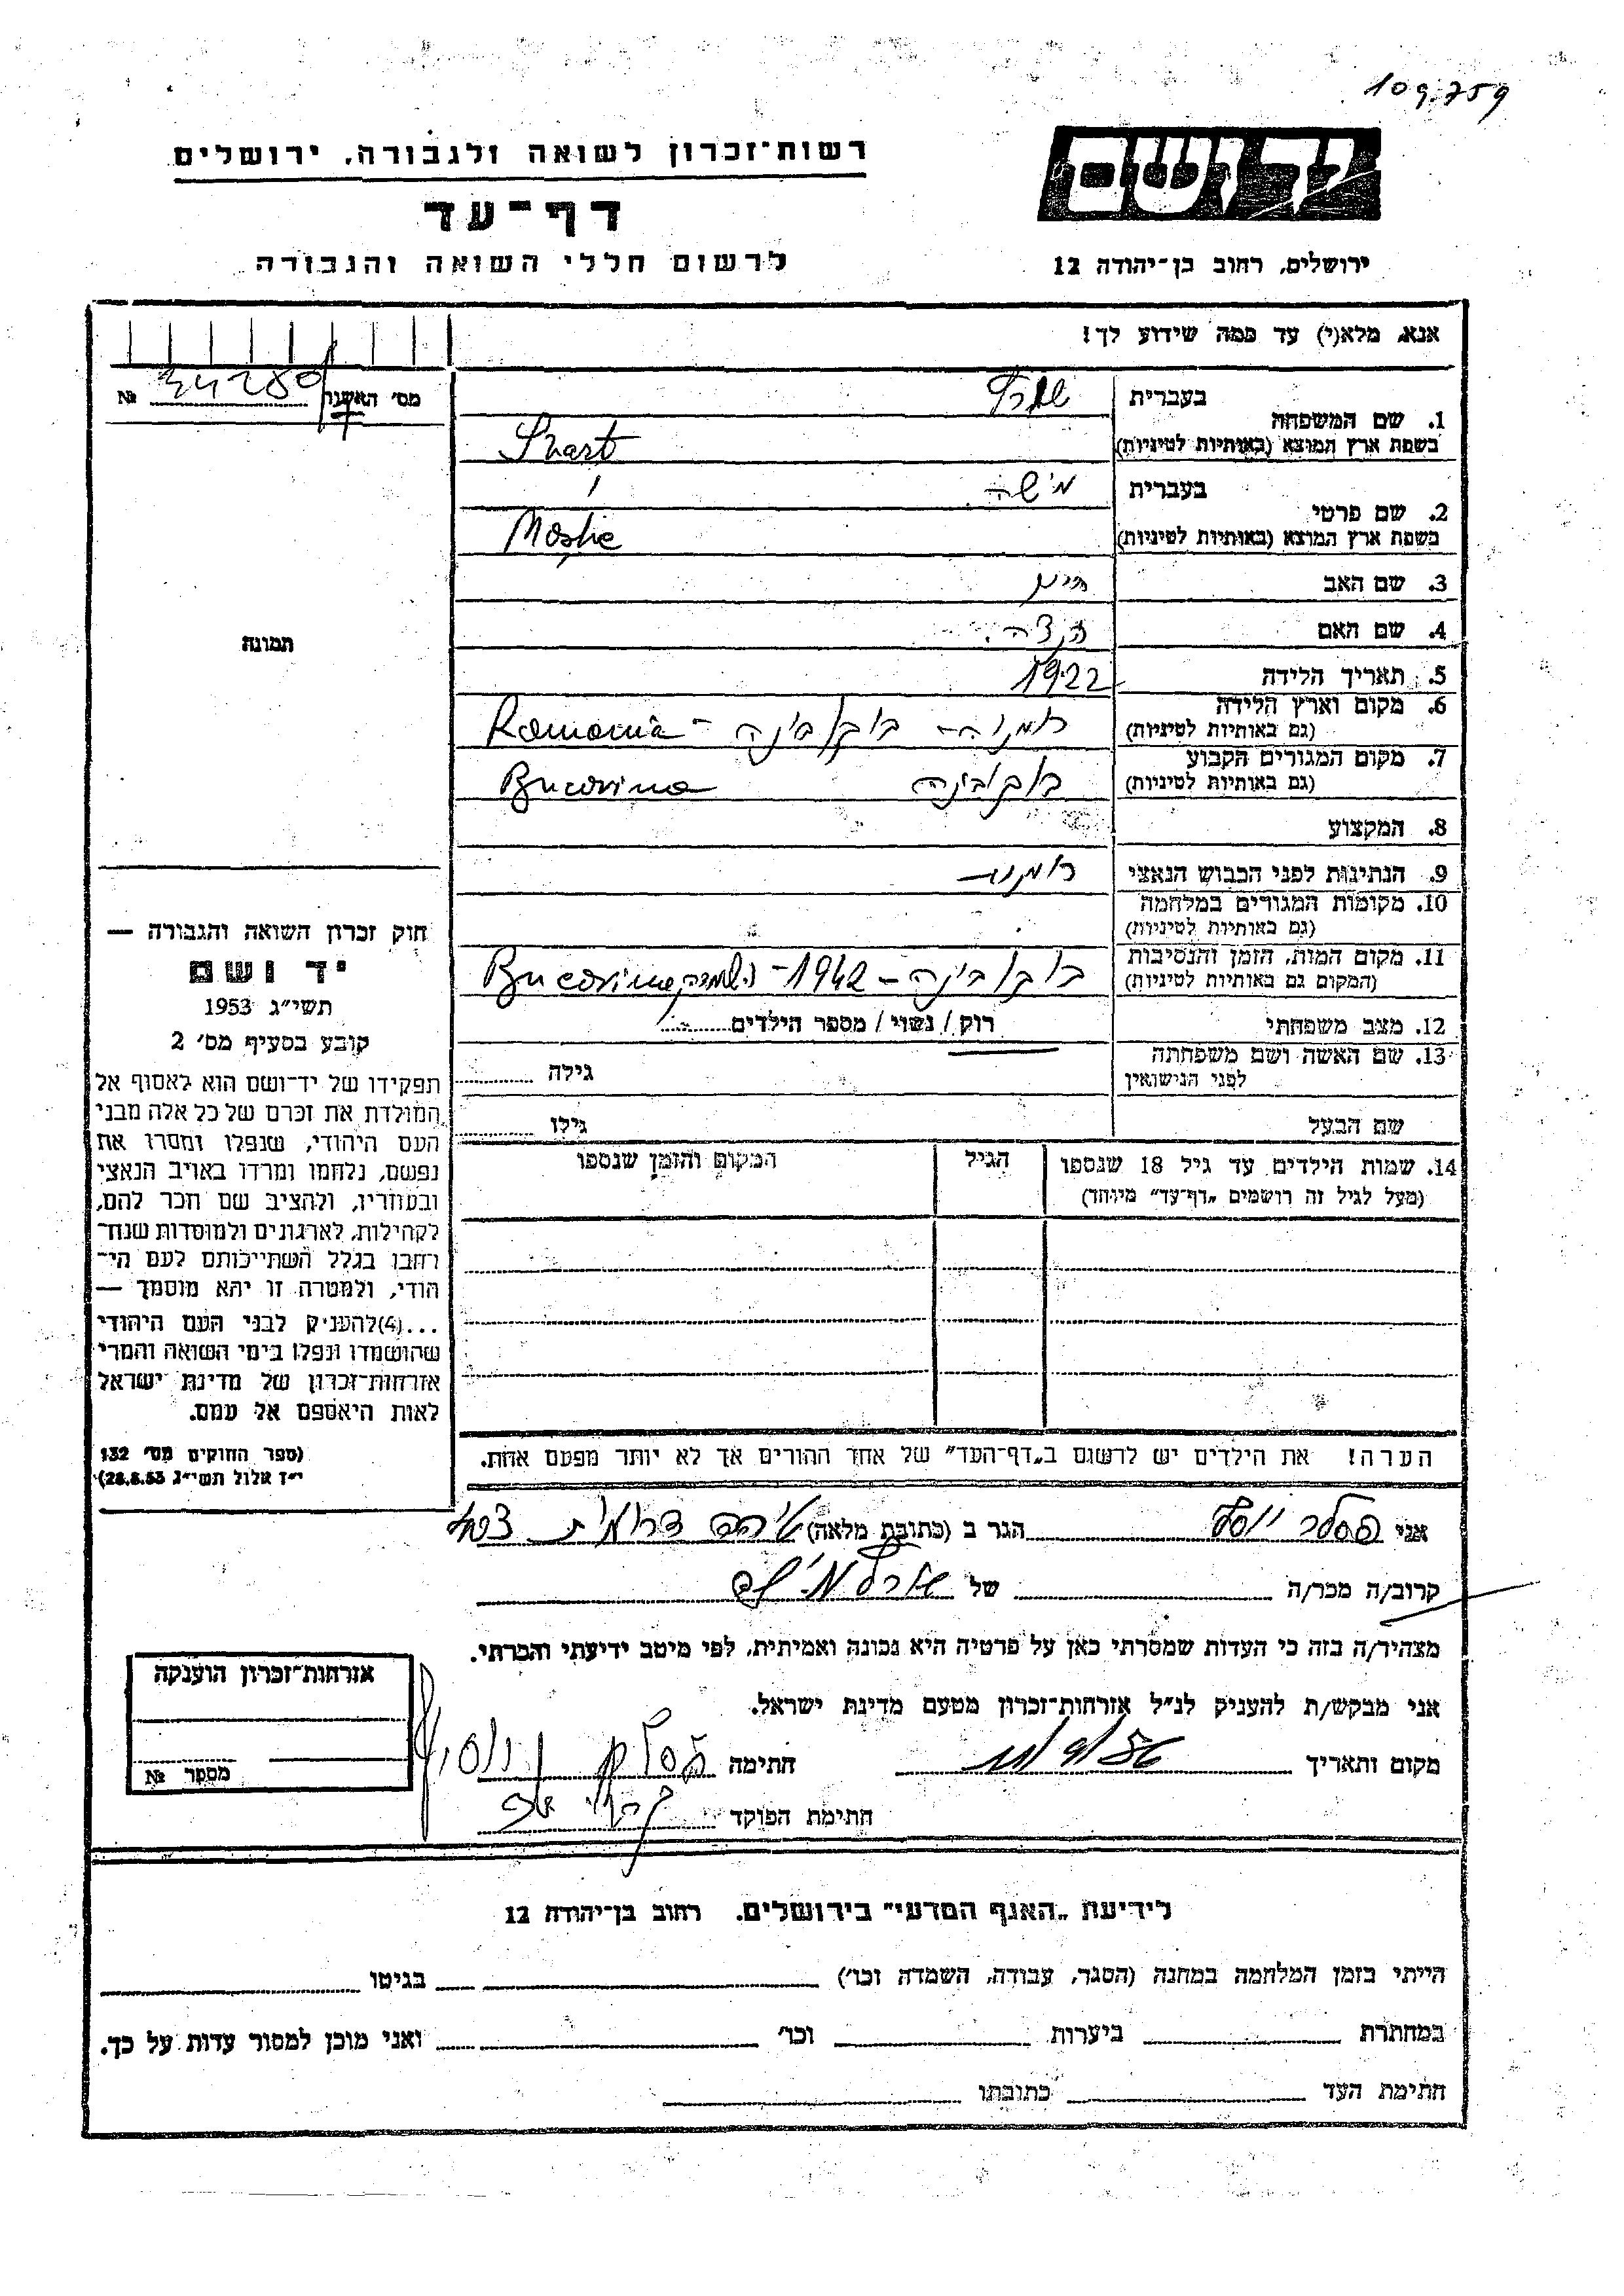 109.759
רשות־זכרון לשואה ולגבורה, ירושלים
דף־עד
לרשום חללי השואה והגבורה
יד ושם
ירושלים, רחוב בן־יהודה 12
אנא, מלא(י) עד כמה שידוע לך!
מס׳ האשנה № 34280
1. שם המשפחה
בעברית
בשפת ארץ המוצא (באותיות לטיניות) Shart
2. שם פרטי
בעברית מישה
בשפת ארץ המוצא (באותיות לטיניות) Moshe
3. שם האב חיים
4. שם האם
5. תאריך הלידה 1922
6. מקום וארץ הלידה
(גם באותיות לטיניות) רומניה - בוקובינה - Romania
7. מקום המגורים הקבוע
(גם באותיות לטיניות) בוקובינה Bucovina
8. המקצוע
9. הנתינות לפני הכבוש הנאצי רומנית
10. מקומות המגורים במלחמה
(גם באותיות לטיניות)
11. מקום המות, הזמן והנסיבות
(המקום גם באותיות לטיניות) בוקובינה - 1942 - Bucovina
12. מצב משפחתי רוק / נשוי / מספר הילדים
13. שם האשה ושם משפחתה
לפני הנישואין גילה
שם הבעל גילו
14. שמות הילדים עד גיל 18 שנספו הגיל המקום והזמן שנספו
(מעל לגיל זה רושמים „דף־עד״ מיוחד)
הערה! את הילדים יש לרשום ב„דף־העד״ של אחד ההורים אך לא יותר מפעם אחת.
תמונה
חוק זכרון השואה והגבורה —
יד ושם
תשי״ג 1953
קובע בסעיף מס׳ 2
תפקידו של יד־ושם הוא לאסוף אל
המולדת את זכרם של כל אלה מבני
העם היהודי, שנפלו ומסרו את
נפשם, נלחמו ומרדו באויב הנאצי
ובעוזריו, ולהציב שם וזכר להם,
לקהילות, לארגונים ולמוסדות שנח־
רחבו בגלל השתייכותם לעם הי־
הודי, ולמטרה זו יהא מוסמך —
...(4)להעניק לבני העם היהודי
שהושמדו ונפלו בימי השואה והמרי
אזרחות־זכרון של מדינת ישראל
לאות היאספם אל עמם.
(ספר החוקים מס׳ 132
י״ז אלול תשי״ג 28.8.53)
אני יוסף הגר ב (כתובת מלאה)
קרוב/ה מכר/ה של
מצהיר/ה בזה כי העדות שמסרתי כאן על פרטיה היא נכונה ואמיתית, לפי מיטב ידיעתי והכרתי.
אני מבקש/ת להעניק לנ״ל אזרחות־זכרון מטעם מדינת ישראל.
מקום ותאריך חתימה
חתימת הפוקד
אזרחות־זכרון הוענקה
מספר №
לידיעת „האגף המדעי״ בירושלים. רחוב בן־יהודה 12
הייתי בזמן המלחמה במחנה (הסגר, עבודה, השמדה וכו׳) בגיטו
במחתרת ביערות וכו׳ ואני מוכן למסור עדות על כך.
חתימת העד כתובתו